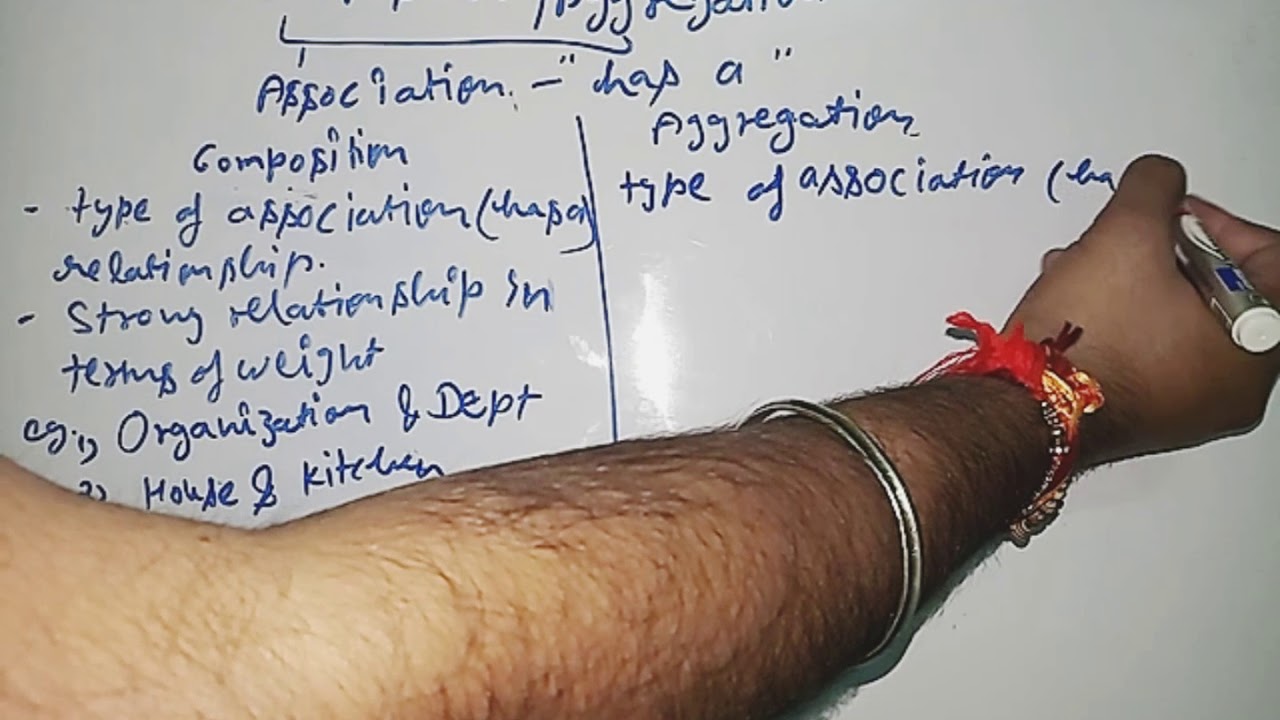 Association - "has a"
Composition
- type of association (has a)
relationship.
- Strong relationship in
terms of weight
eg. 1) Organization & Dept
2) House & Kitchen
Aggregation
type of association (ha